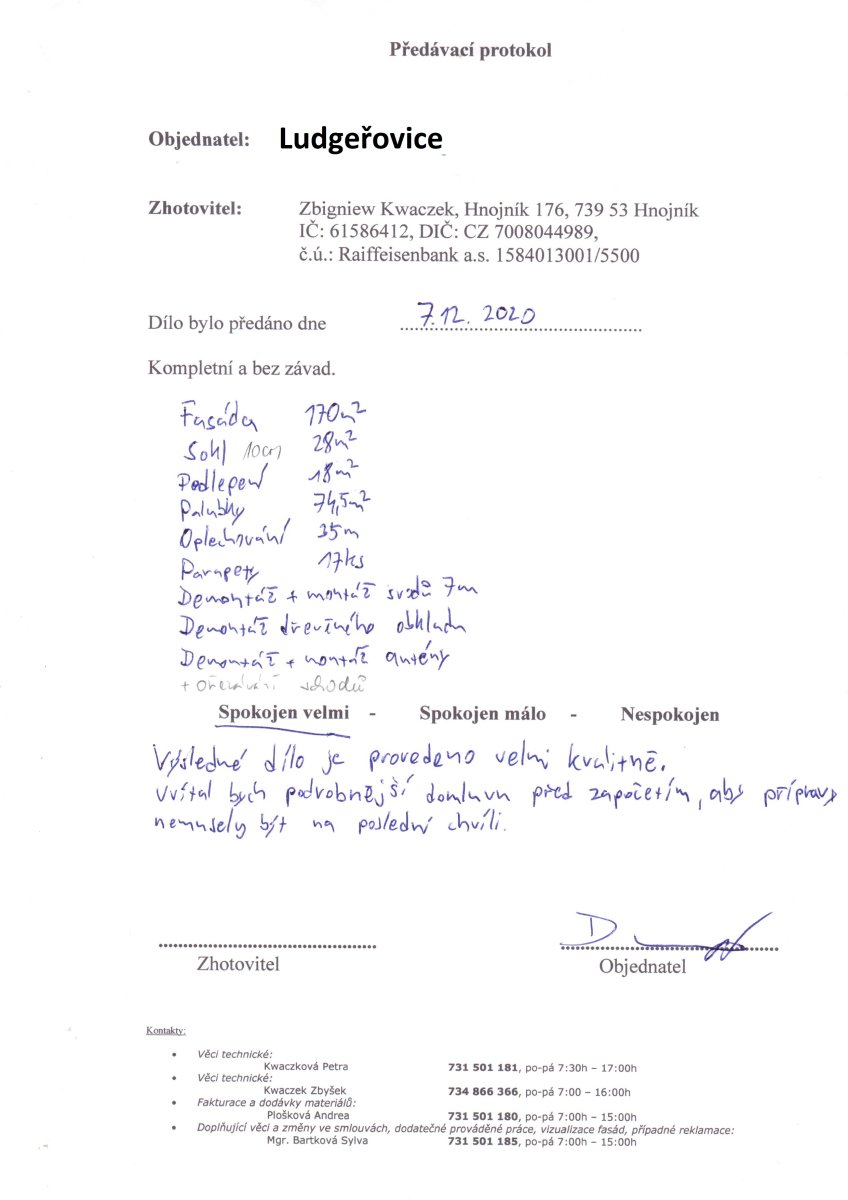 Předávací protokol
Objednatel: Ludgeřovice
Zhotovitel: Zbigniew Kwaczek, Hnojník 176, 739 53 Hnojník
IČ: 61586412, DIČ: CZ 7008044989,
č.ú.: Raiffeisenbank a.s. 1584013001/5500
Dílo bylo předáno dne 7.12. 2020
Kompletní a bez závad.
Fasáda 170m²
Sokl 10cm 28m²
Podlepení 18m²
Palubky 74,5m²
Oplechování 35m
Parapety 17ks
Demontáž + montáž svodů 7m
Demontáž dřevěného obkladu
Demontáž + montáž antény
+ ořezávání schodů
Spokojen velmi - Spokojen málo - Nespokojen
Výsledné dílo je provedeno velmi kvalitně.
Uvítal bych podrobnější domluvu před započetím, aby přípravy
nemusely být na poslední chvíli.
Zhotovitel Objednatel
Kontakty:
• Věci technické:
Kwaczková Petra 731 501 181, po-pá 7:30h – 17:00h
• Věci technické:
Kwaczek Zbyšek 734 866 366, po-pá 7:00 – 16:00h
• Fakturace a dodávky materiálů:
Plošková Andrea 731 501 180, po-pá 7:00h – 15:00h
• Doplňující věci a změny ve smlouvách, dodatečné prováděné práce, vizualizace fasád, případné reklamace:
Mgr. Bartková Sylva 731 501 185, po-pá 7:00h – 15:00h